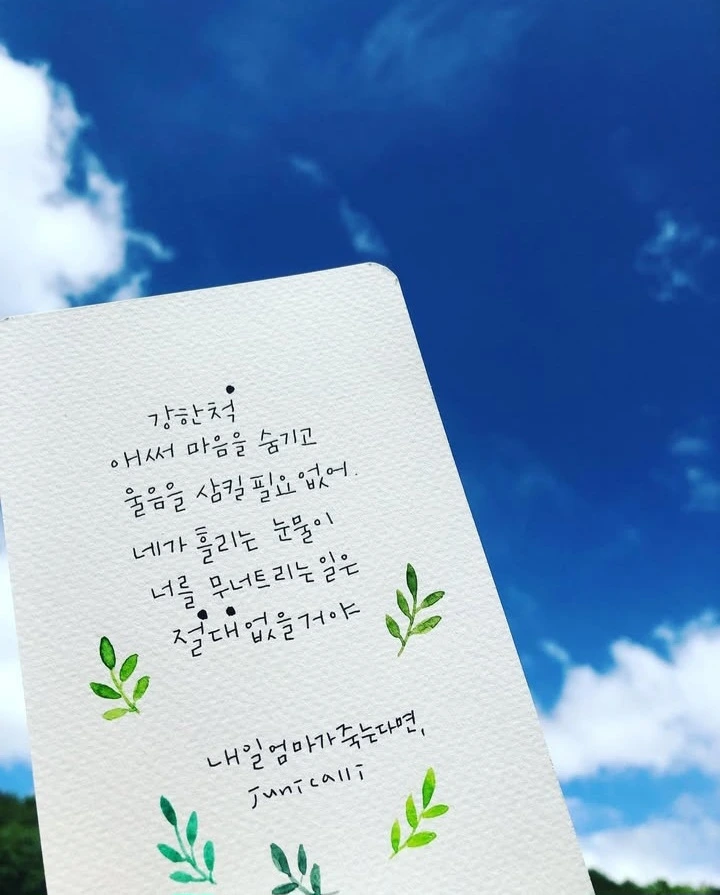 강한척
애써 마음을 숨기고
울음을 삼킬 필요없어.
네가 흘리는 눈물이
너를 무너트리는일은
절대없을거야
내일엄마가죽는다면,
junicalli